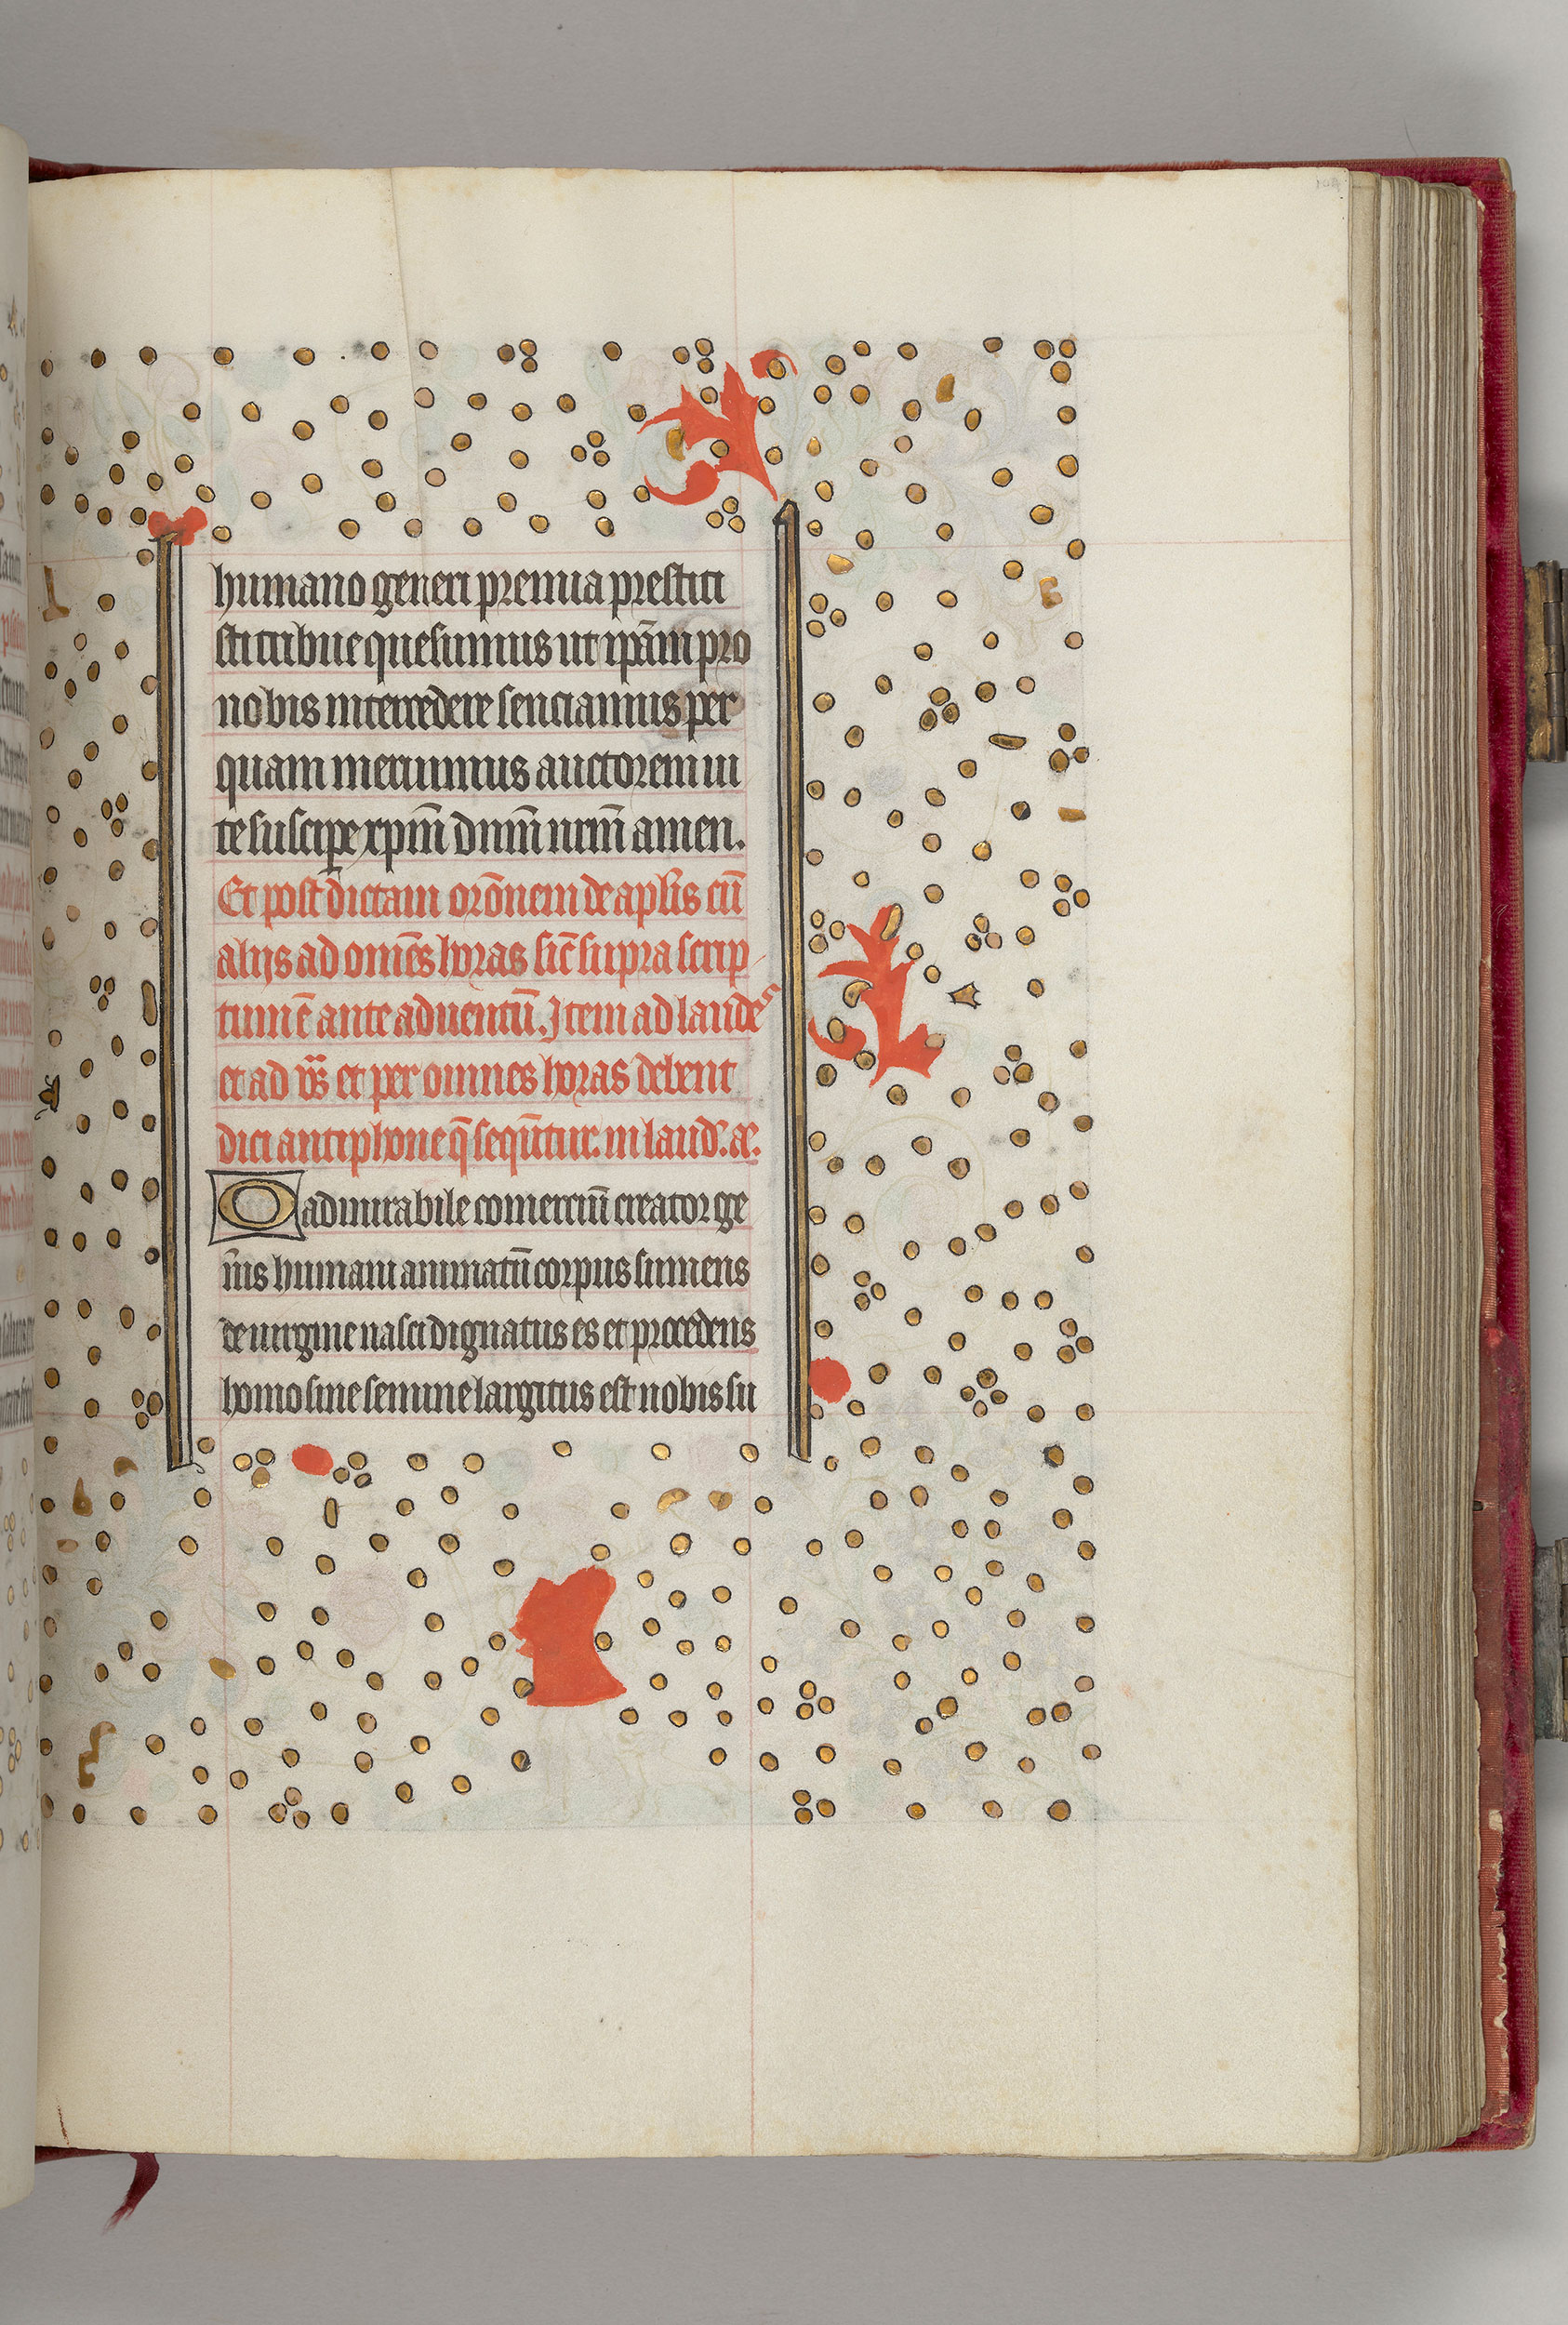 humano generi premia prestiti
sti tribue quesumus ut ip̄am pro
nobis intercedere sentiamus per
quam meruimus auctorem ui
te suscipe xp̄m dnm̄ nrm̄ amen.
Et post dictam orōnem de apl̄is cū
alijs ad omēs horas sic̄ supra scrip
tum ē ante aduentū. Item ad laudes
et ad vs̄ et per omnes horas debent
dici antiphone q̄ sequūtur. in laud. añ.
O admirabile comerciū creator ge
n̄is humani animatū corpus sumens
de uirgine nasci dignatus es et procedens
homo sine semine largitus est nobis su
104